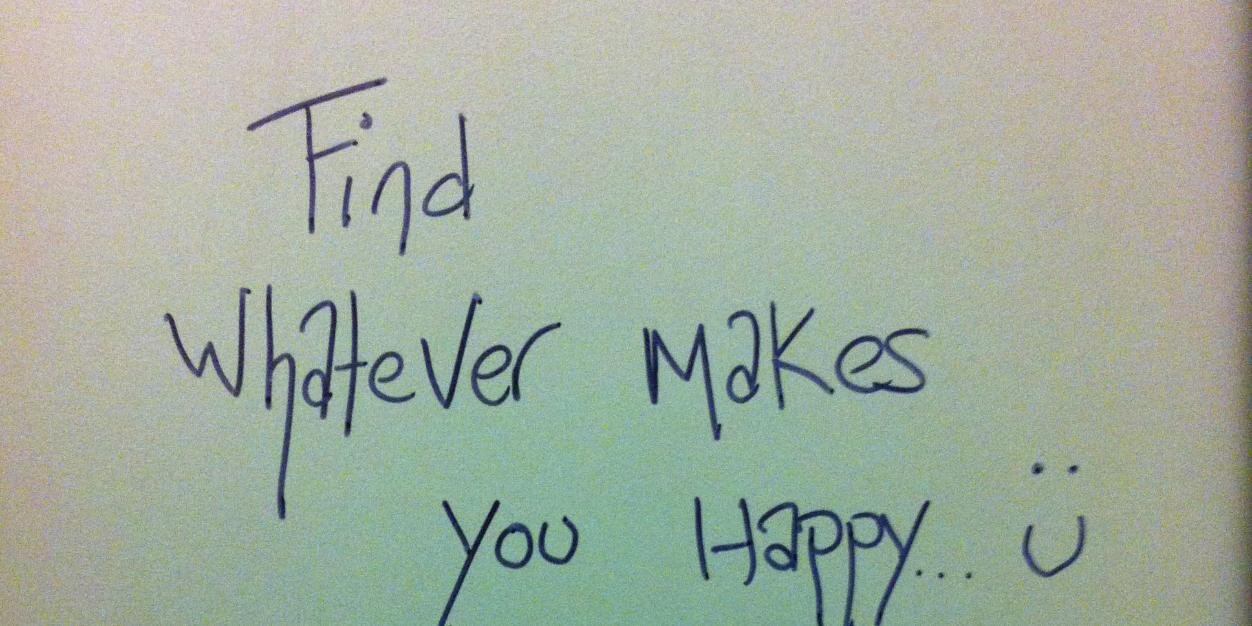 Find
Whatever makes
you Happy... Ü